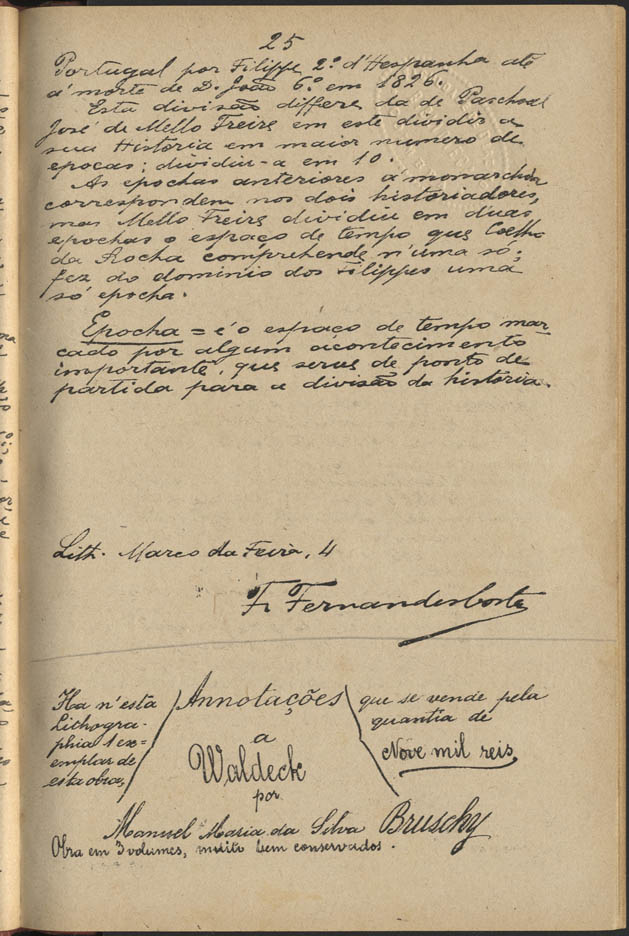 25
Portugal por Filippe 2.º d'Hespanha até
á morte de D. João 6.º em 1826.
Esta divisão differe da de Paschoal
José de Mello Freire em este dividir a
sua Historia em maior numero de
epocas; dividiu-a em 10.
As epochas anteriores á monarchia
correspondem nos dois historiadores,
mas Mello Freire dividiu em duas
epochas o espaço de tempo que Coelho
da Rocha comprehende n'uma só;
fez do dominio dos Filippes uma
só epocha.
Epocha = é o espaço de tempo mar-
cado por algum acontecimento
importante, que serve de ponto de
partida para a divisão da historia.
Lith. Marco da Feira, 4
F. Fernandes Costa
Ha n'esta
Lithogra-
phia 1 ex=
emplar de
esta obra,
Annotações
a
Waldeck
por
que se vende pela
quantia de
Nove mil reis
Manuel Maria da Silva Bruschy
Obra em 3 volumes, muito bem conservados.